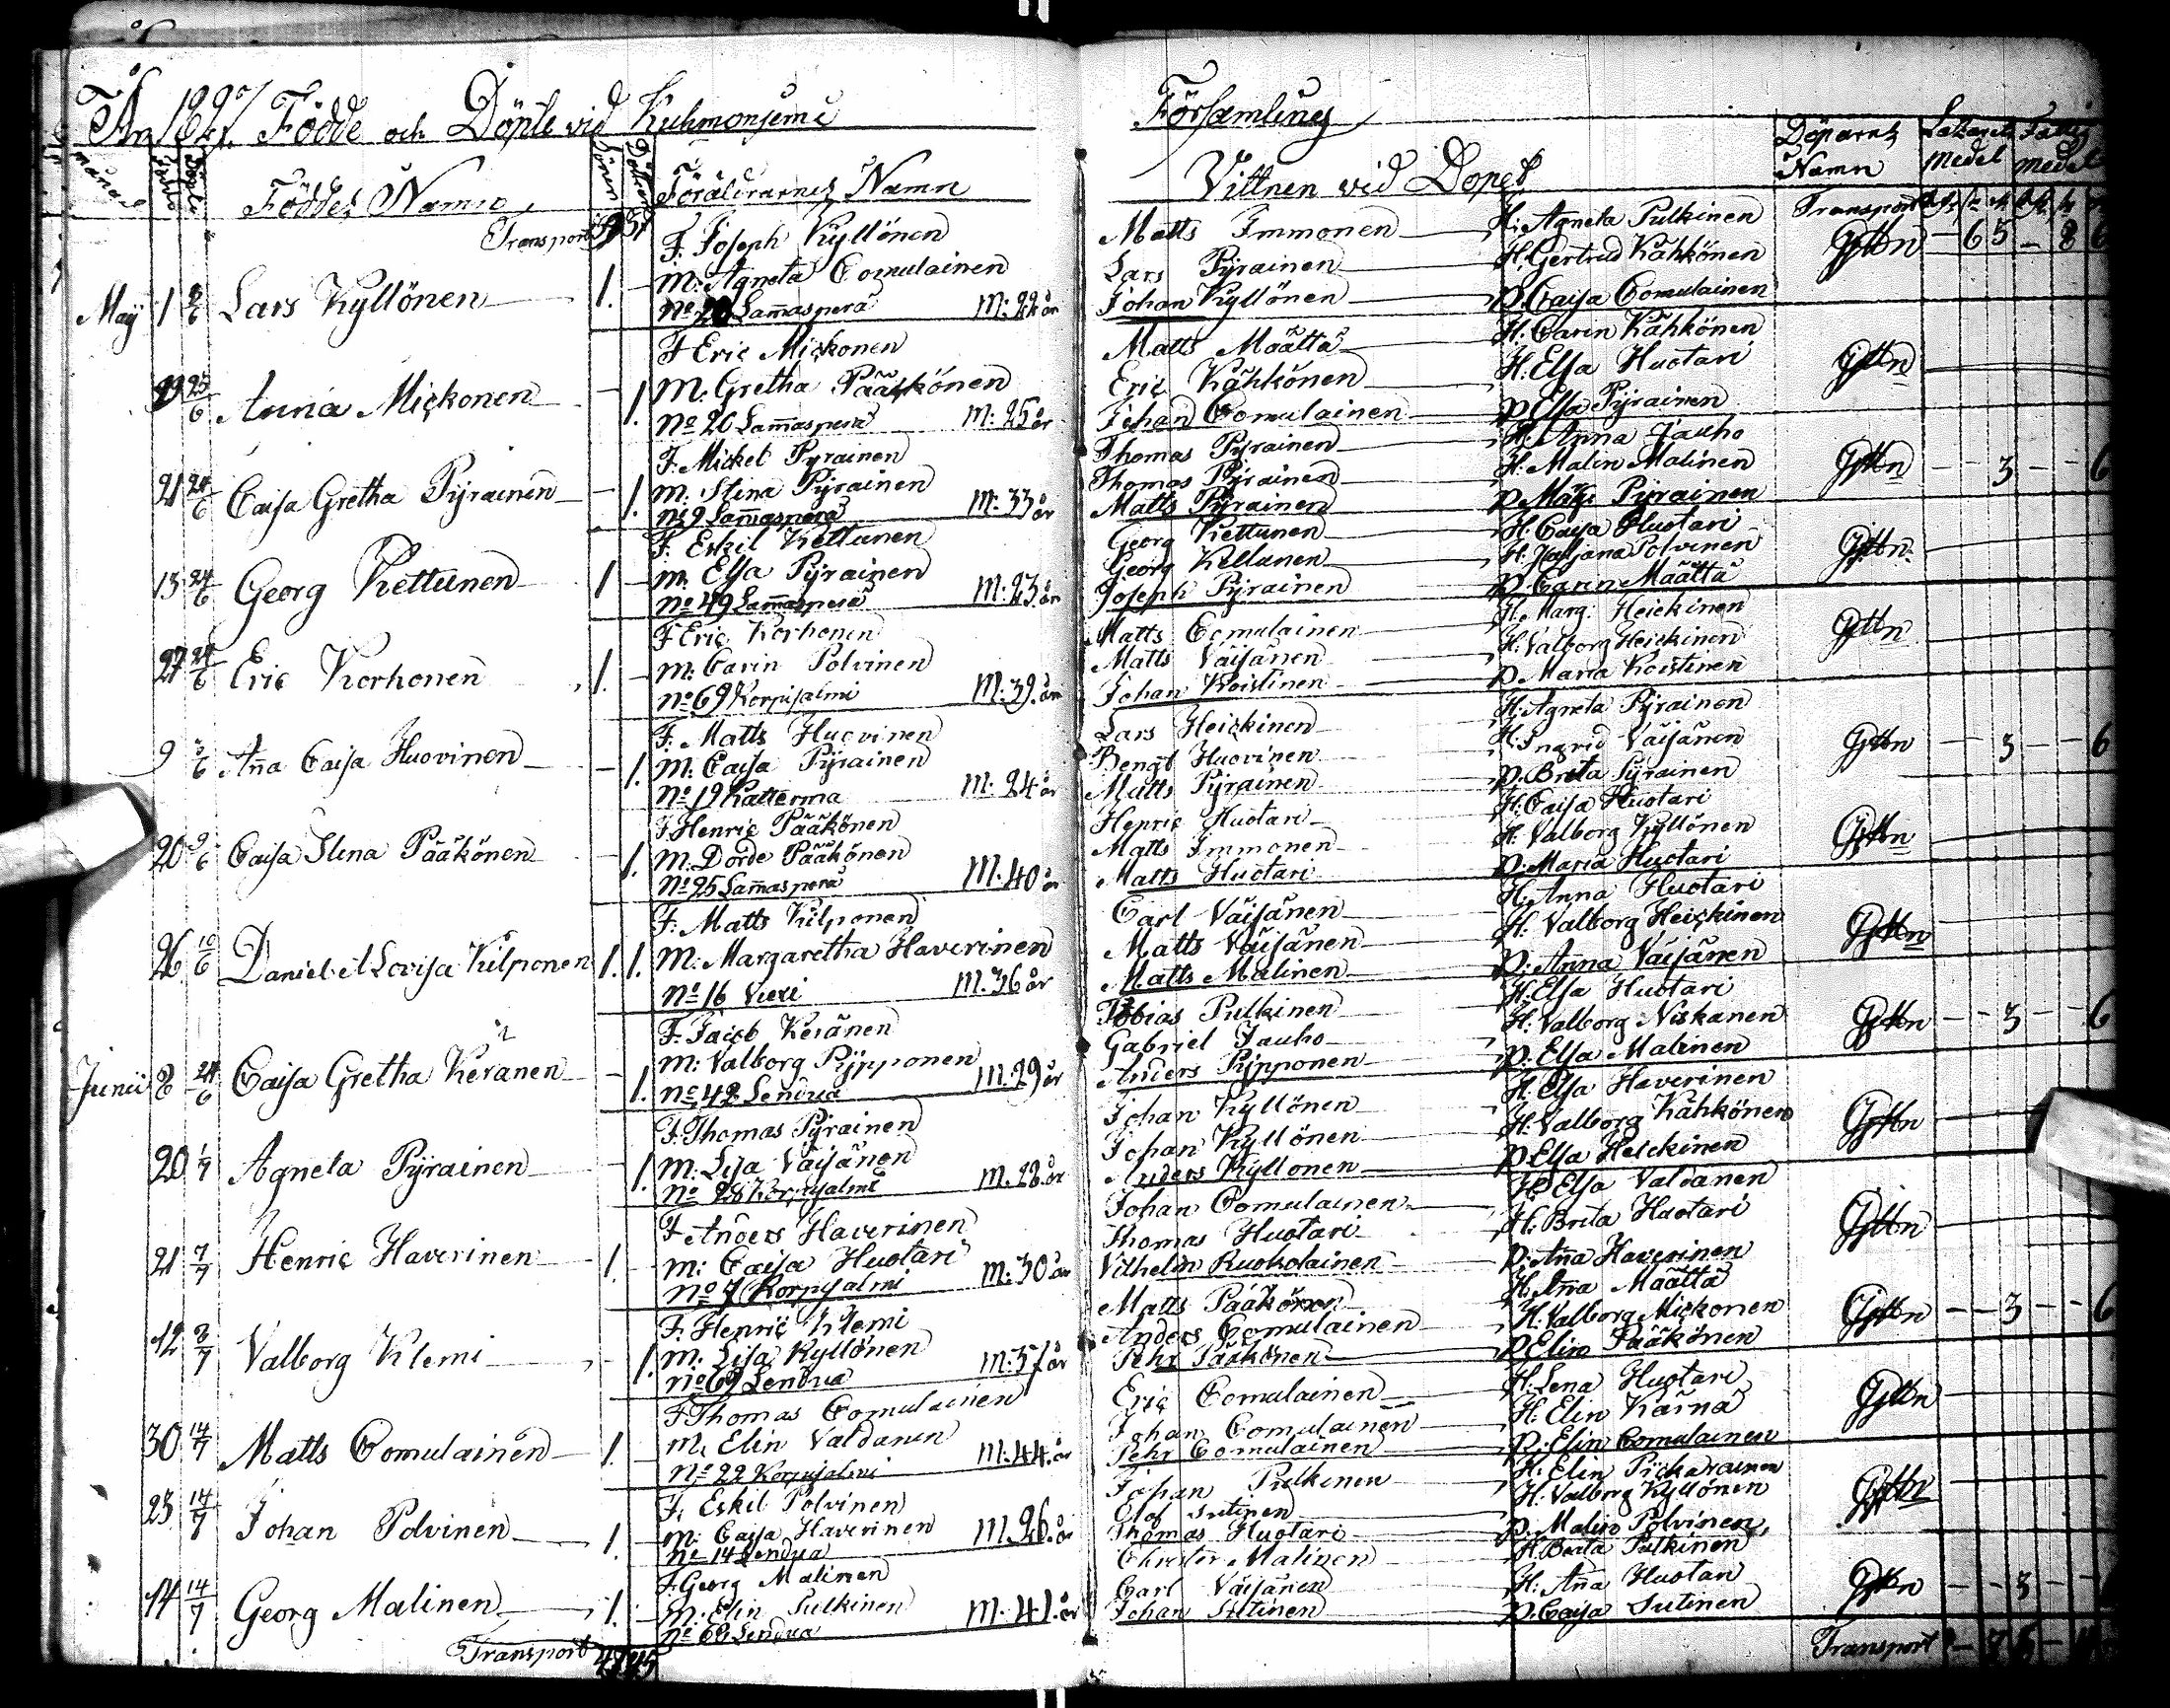 Födde och Döpte vid Kuhmonjemi Församling
månad Födde Döpte Föddes Namn Söner Döttrar Föräldrarnes Namn Vittnen vid Dopet Döparns Namn Medel Medel
Transport
May 1 Lars Kyllönen 1.
F. Joseph Kyllönen
M: Agneta Comulainen
No 20 Lam̄asperä M: 22 år
Matts Immonen H: Agneta Pulkinen
Lars Pyrainen H. Gertrud Kähkönen
Johan Kyllönen P. Caisa Comulainen
Gttn 6 5 8 6
25/6 Anna Mickonen 1.
F Eric Mickonen
M: Gretha Pääkkönen
No 26 Lam̄asperä M: 25 år
Matts Määttä H. Carin Kähkönen
Eric Kähkönen H: Elsa Huotari
Johan Comulainen P Elsa Pyrainen
Gttn
21 24/6 Caisa Gretha Pyrainen 1.
F: Mickel Pyrainen
M: Stina Pyrainen
No 9 Lam̄asperä M: 33 år
Thomas Pyrainen H: Anna Jauho
Thomas Pyrainen H. Malin Malinen
Matts Pyrainen P Pyrainen
Gttn 3 6
13 24/6 Georg Kettunen 1
F. Eskil Kettunen
M. Elsa Pyrainen
No 49 Lam̄asperä M: 23 år
Georg Kettunen H: Caisa Huotari
Georg Kettunen H. Polvinen
Joseph Pyrainen P. Carin Määttä
Gttn
27 24/6 Eric Korhonen 1.
F Eric Korhonen
M: Carin Polvinen
No 69 Korpisalmi M: 39. år
Matts Comulainen H. Marg: Heickinen
Matts Väisänen H. Valborg Heickinen
Johan Koistinen P Maria Koistinen
Gttn
9 3/6 An̄a Caisa Huovinen 1.
F. Matts Huovinen
M: Caisa Pyrainen
No 19 Katterma M: 24 år
Lars Heickinen H: Agneta Pyrainen
Bengt Huovinen H. Ingrid Väisänen
Matts Pyrainen P. Brita Pyrainen
Gttn 3 6
20 9/6 Caisa Stina Pääkönen 1.
F Henric Pääkönen
M: Dorde Pääkönen
No 25 Lam̄asperä M: 40 år
Henric Huotari H: Caisa Huotari
Matts Immonen H. Valborg Kyllönen
Matts Huotari P: Maria Huotari
Gttn
26 10/6 Daniel & Lovisa Kilponen 1. 1.
F: Matts Kilponen
M: Margaretha Haverinen
No 16 M. 36 år
Carl Väisänen H: Anna Huotari
Matts Väisänen H: Valborg Heickinen
Matts Malinen P: An̄a Väisänen
Gttn
Junii 8 24/6 Caisa Gretha Keränen 1.
F. Jacob Keränen
M: Valborg Pypponen
No 42 Lendua M. 29 år
Tobias Pulkinen H: Elsa Huotari
Gabriel Jauho H: Valborg Niskanen
Anders Pypponen P. Elsa Malinen
Gttn 3 6
20 1/7 Agneta Pyrainen 1.
F. Thomas Pyrainen
M: Lisa Väisänen
No 28 Korpisalmi M: 28. år
Johan Kyllönen H. Elsa Haverinen
Johan Kyllönen H: Valborg Kähkönen
Anders Kyllonen P Elsa Heickinen
Gttn
21 7/7 Henric Haverinen 1.
F Anders Haverinen
M: Caisa Huotari
No 7 Korpisalmi M: 30 år
Johan Comulainen H Elsa Valdanen
Thomas Huotari H: Brita Huotari
Vilhelm Ruokolainen P. An̄a Haverinen
Gttn
12 8/7 Valborg Klemi 1.
F. Henric Klemi
M: Lisa Kyllönen
No 69 Lendua M: 37 år
Matts Pääkönen H. An̄a Määttä
Anders Comulainen H. Valborg Mickonen
Pehr Pääkönen P. Elin Pääkönen
Gttn 3 6
30 14/7 Matts Comulainen 1.
F Thomas Comulainen
M. Elin Valdanen
No 22 Korpisalmi M: 44. år
Eric Comulainen H: Lena Huotari
Johan Comulainen H. Elin Kärnä
Pehr Comulainen P: Elin Comulainen
Gttn
23 14/7 Johan Polvinen 1.
F. Eskil Polvinen
M: Caisa Haverinen
No 14 Lendua M. 26. år
Johan Pulkinen H: Elin
Olof Sutinen H. Valborg Kyllönen
Thomas Huotari P. Malin Polvinen
Gttn
14 14/7 Georg Malinen 1.
F. Georg Malinen
M: Elin Pulkinen
No 62 Lendua M: 41. år
Christer Malinen H. Brita Pulkinen
Carl Väisänen H: An̄a Huotari
Johan Sutinen P. Caisa Sutinen
Gttn 3
Transport
Transport